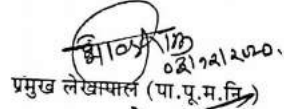 ०२/१२/२०२०.
प्रमुख लेखापाल (पा.पू.म.नि.)